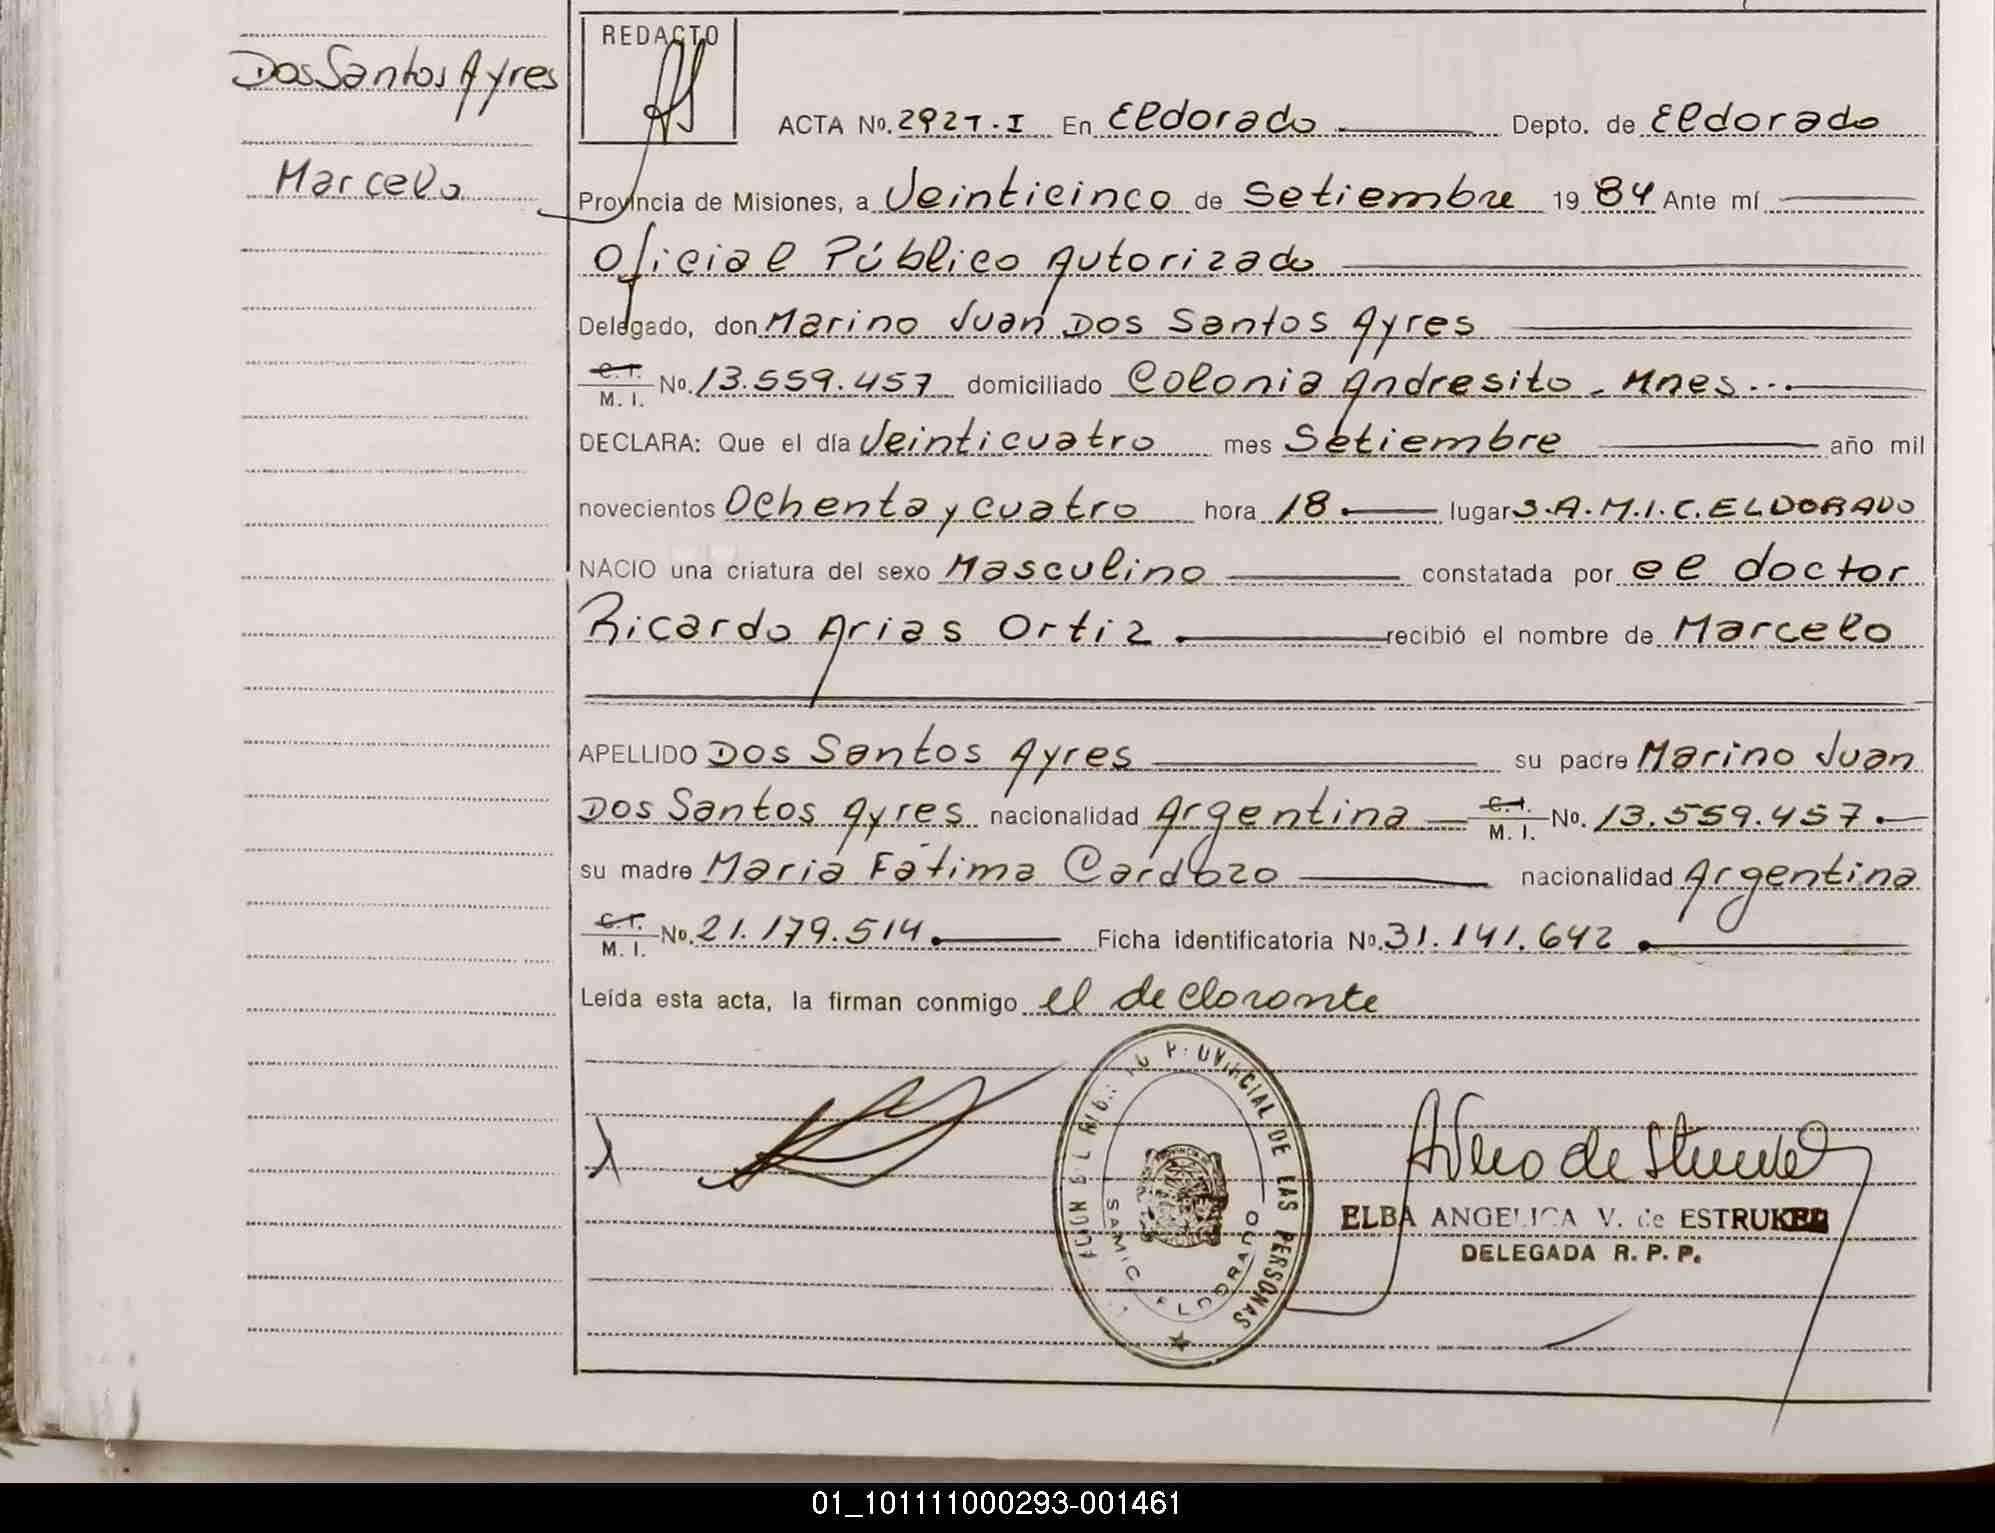 Dos Santos Ayres
Marcelo
REDACTO
ACTA No. 2927-I En Eldorado Depto. de Eldorado
Provincia de Misiones, a Veinticinco de Setiembre 19 84 Ante mí
Oficial Público Autorizado
Delegado, don Marino Juan Dos Santos Ayres
C. I. / M. I. No. 13.559.457 domiciliado Colonia Andresito - Mnes...
DECLARA: Que el día Veinticuatro mes Setiembre año mil
novecientos Ochenta y cuatro hora 18 lugar S.A.M.I.C. ELDORADO
NACIO una criatura del sexo Masculino constatada por el doctor
Ricardo Arias Ortiz recibió el nombre de Marcelo
APELLIDO Dos Santos Ayres su padre Marino Juan
Dos Santos Ayres nacionalidad Argentina C. I. / M. I. No. 13.559.457
su madre Maria Fátima Cardozo nacionalidad Argentina
C. I. / M. I. No. 21.179.514 Ficha identificatoria No. 31.141.642
Leída esta acta, la firman conmigo el declarante
PROVINCIAL DE LAS PERSONAS
SAMIC ELDORADO
ELBA ANGELICA V. de ESTRUKEL
DELEGADA R. P. P.
01_101111000293-001461